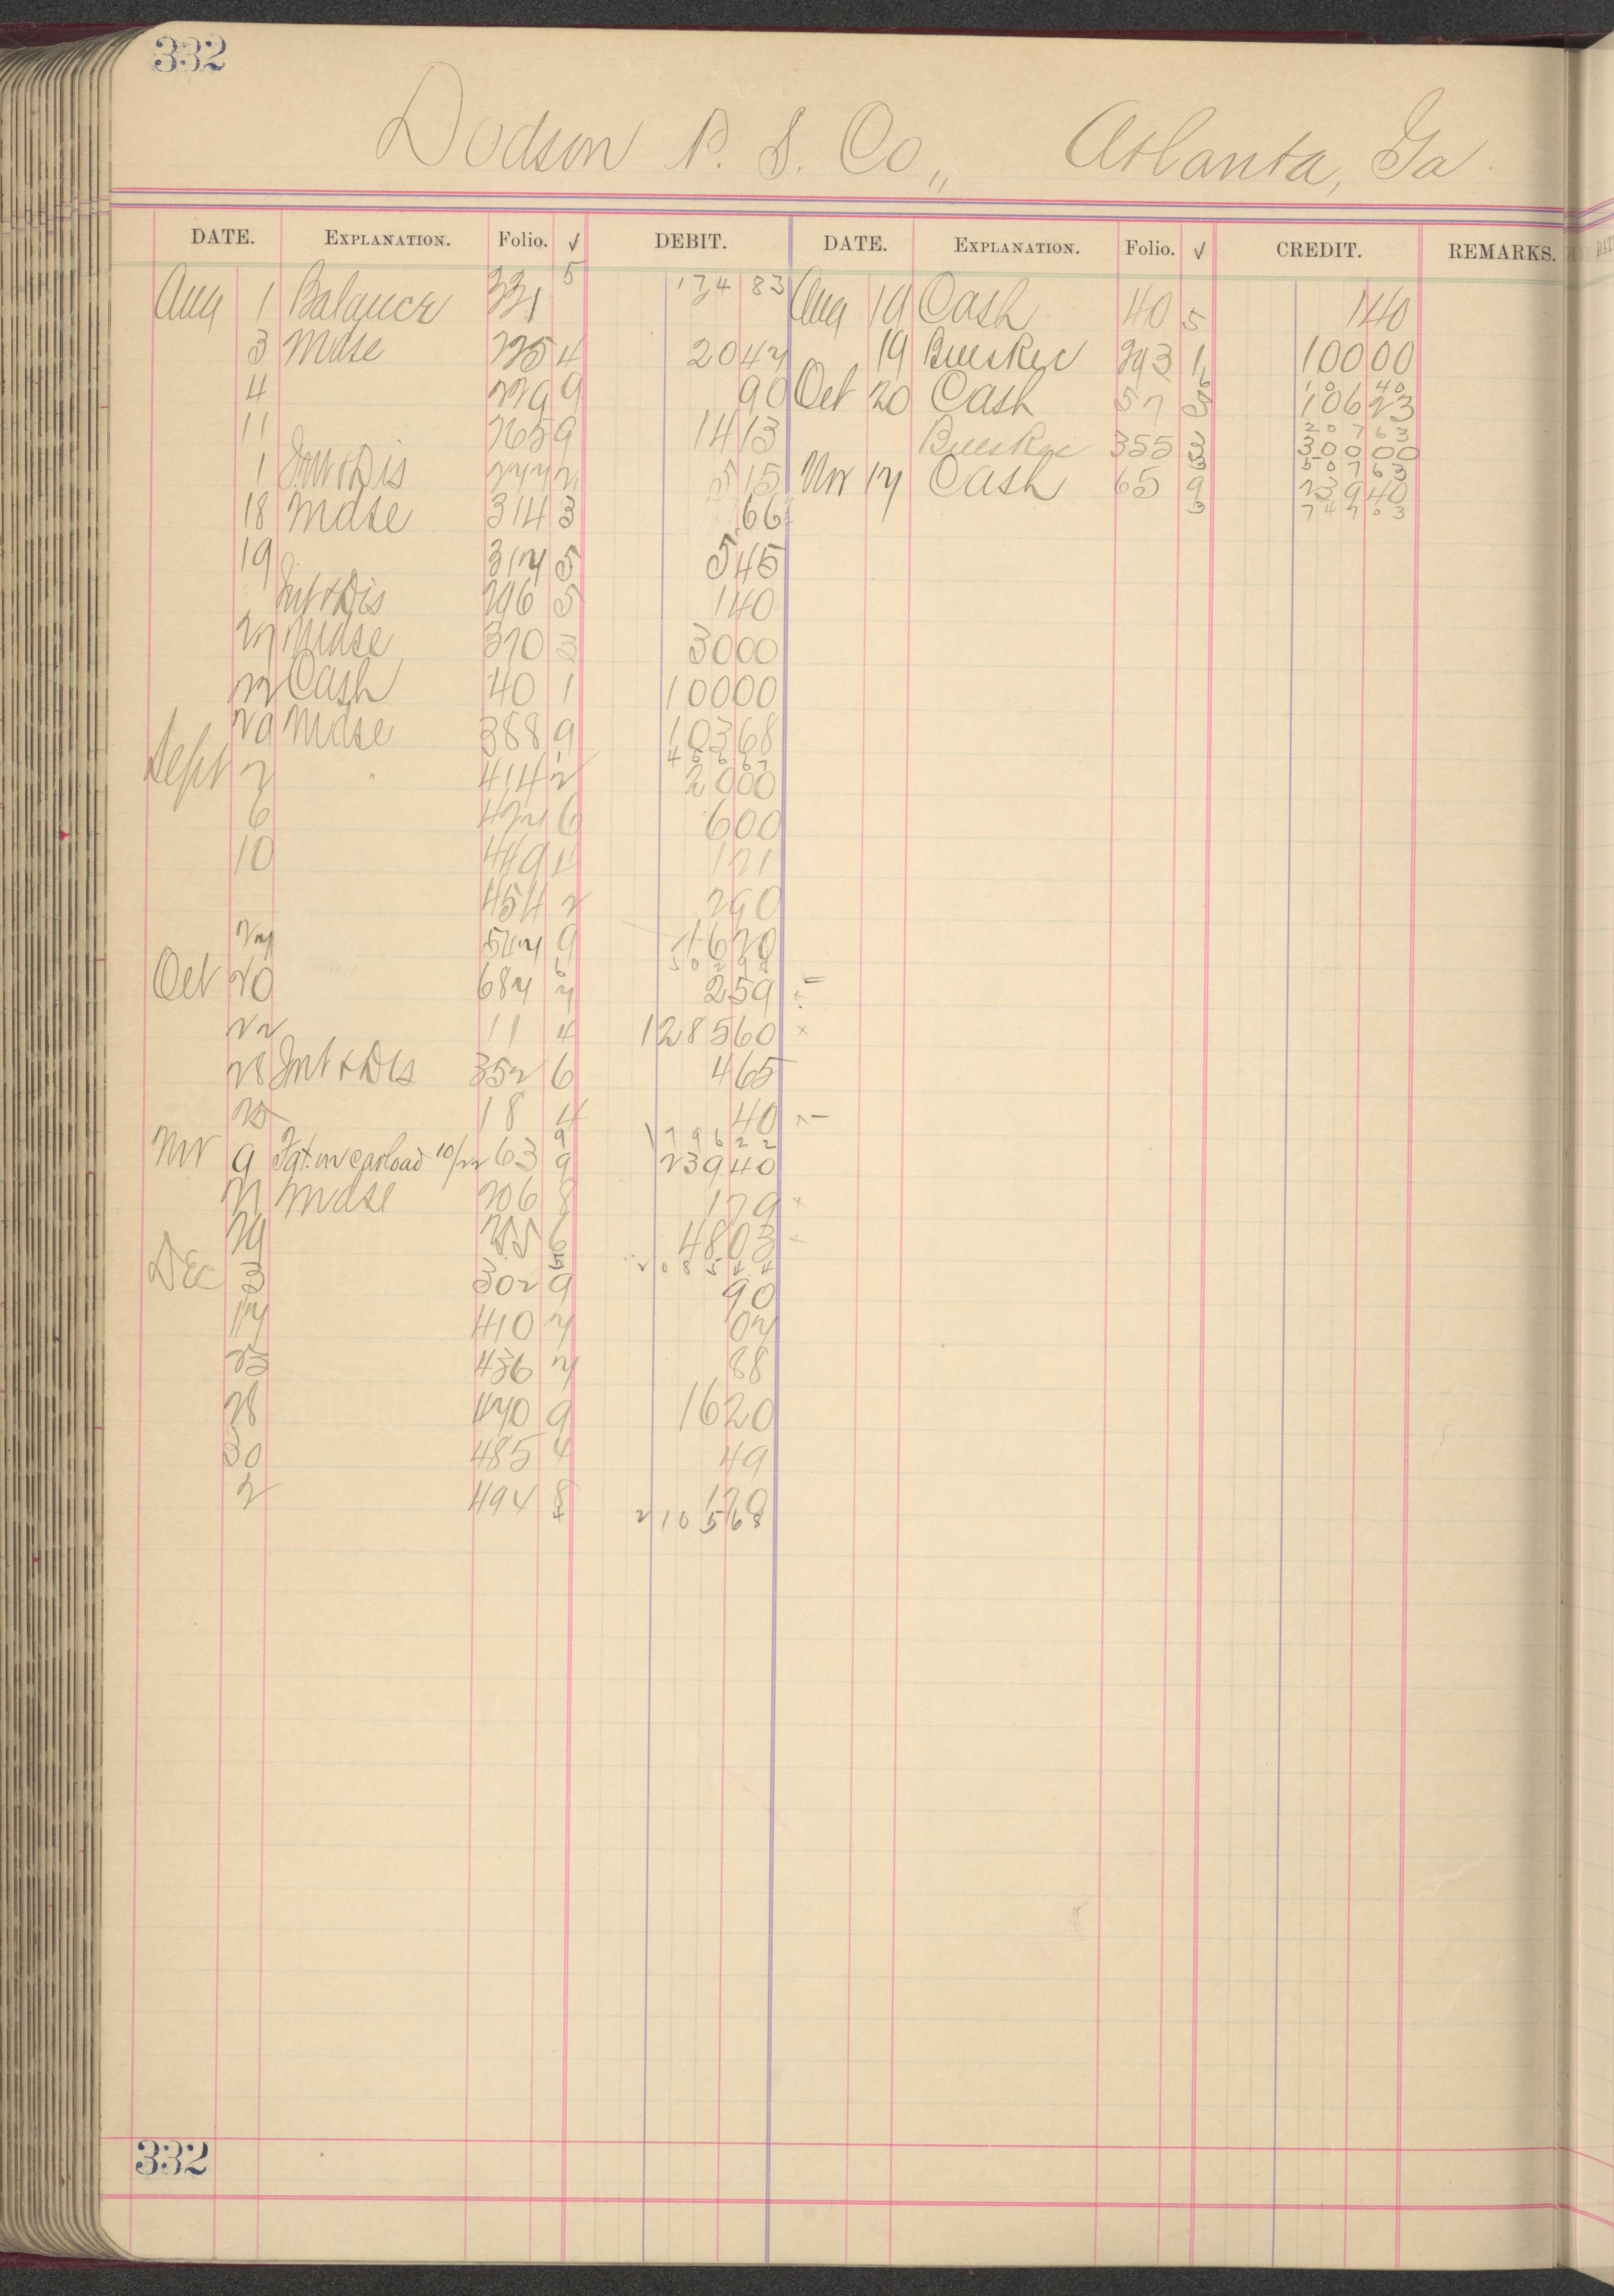 332
Dodson P. S. Co., Atlanta, Ga.
DATE. EXPLANATION. Folio. √ DEBIT. DATE. EXPLANATION. Folio. √ CREDIT. REMARKS.
Aug 1 Balance 331 5 134 83 Aug 19 Cash 40 5 1 40
3 Mdse 225 4 20 42 19 Bills Rec 293 1 100 00
4 229 9 90 Oct 20 Cash 57 106 23
11 265 9 14 13 Bills Rec 355 3 300 00
1 Int & Dis 5 15 Nov 17 Cash 65 9 239 40
18 Mdse 314 3 66 3 747 03
19 317 5 5 45
Int & Dis 296 5 1 40
Mdse 370 3 30 00
22 Cash 40 1 100 00
29 Mdse 388 9 103 68
Sept 2 " 414 2 20 00
6 6 6 00
10 449 4 1 21
454 2 2 90
27 9
Oct 20 687 7 2 59
22 11 4 1285 60 ×
28 Int & Dis 352 6 4 65
18 4 40
1796 22
Nov 9 Fgt. on carload 10/22 63 9 239 40
Mdse 206 8
6 48 03
Dec 3 302 9 90
17 410 7 07
23 436 7 88
28 470 9 16 20
30 485 4 49
2 494 8
2105 68
332